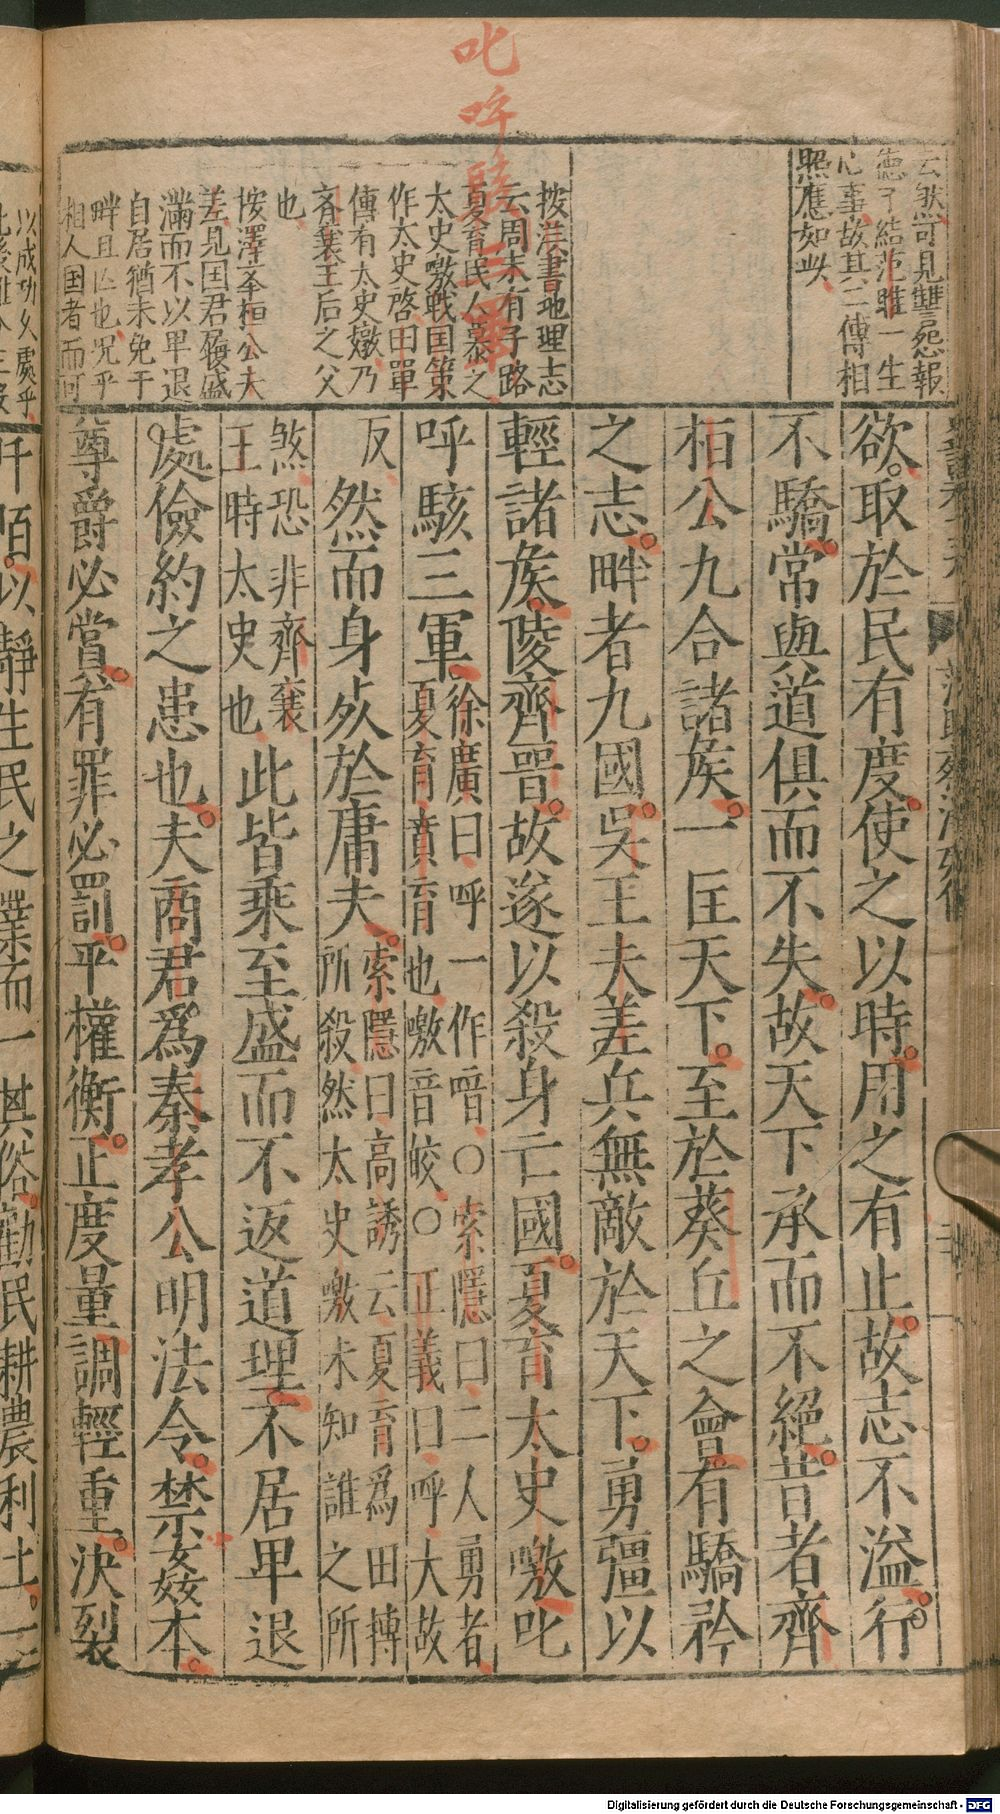 叱呼駭三軍
云然可見讐怨報
德了結范雎一生
心事故其二傳相
照應如此
按漢書地理志
云周未有子路
夏育民人慕之
太史噭戰国策
作太史啓田單
傳有太史嬓乃
齊襄王后之父
也
按澤挙桓公夫
差見国君履盛
滿而不以卑退
自居猶未免于
畔且亡也况乎
相人国者而可
欲取於民有度使之以時用之有止故志不溢行
不驕常與道俱而不失故天下承而不絕昔者齊
桓公九合諸侯一匡天下至於葵丘之會有驕矜
之志畔者九國吳王夫差兵無敵於天下勇彊以
輕諸侯陵齊晉故遂以殺身亡國夏育太史噭叱
呼駭三軍徐廣曰呼一作喑○索隱曰二人勇者
夏育賁育也噭音皎○正義曰呼大故
反然而身死於庸夫索隱曰高誘云夏育爲田摶
所殺然太史噭未知誰之所
煞恐非齊襄
王時太史也此皆乘至盛而不返道理不居卑退
處儉約之患也夫商君爲秦孝公明法令禁姦本
尊爵必賞有罪必罰平權衡正度量調輕重決裂
以成功久處乎
阡陌以靜生民之業而一其俗勸民耕農利土一
Digitalisierung gefördert durch die Deutsche Forschungsgemeinschaft - DFG